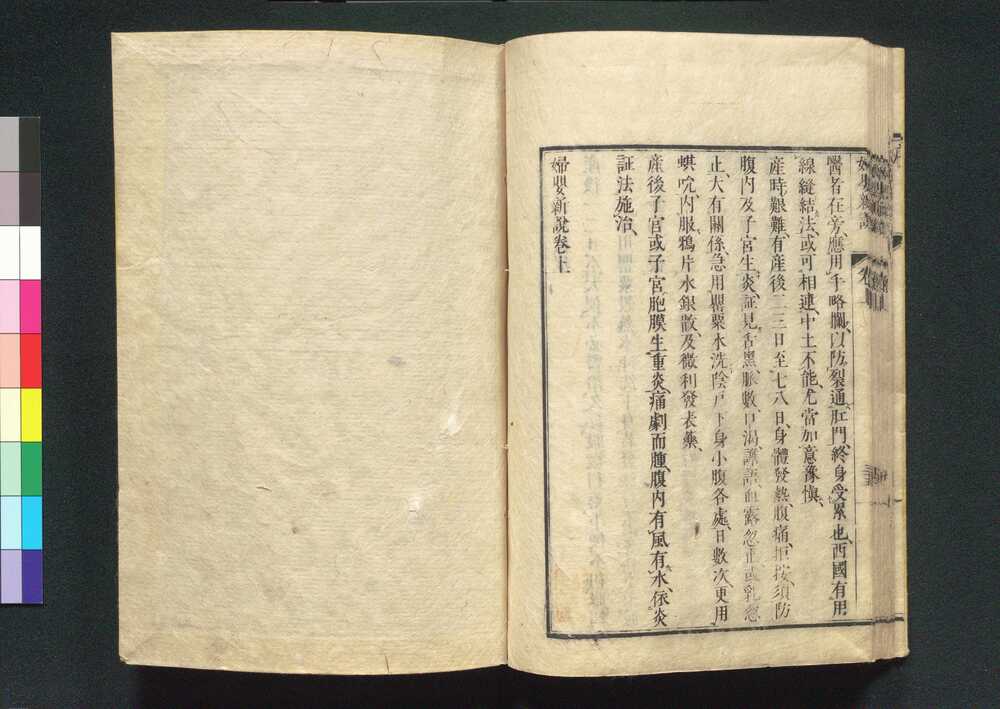 醫者在旁、應用手略攔、以防裂通肛門、終身受累也、西國有用
線縫結法、或可相連、中土不能、尤當加意豫慎、
產時艱難、有產後二三日至七八日、身體發熱、腹痛拒按、須防
腹內及子宮生炎、証見舌黑、脈數、口渴、譫語、血露忽止、或乳忽
止、大有關係、急用罌粟水洗陰戶下身小腹各處、日數次、更用
蜞吮、內服鴉片水銀散、及微利發表藥、
產後子宮或子宮胞膜生重炎、痛劇而腫、腹內有風有水、依炎
証法施治、
婦嬰新說卷上